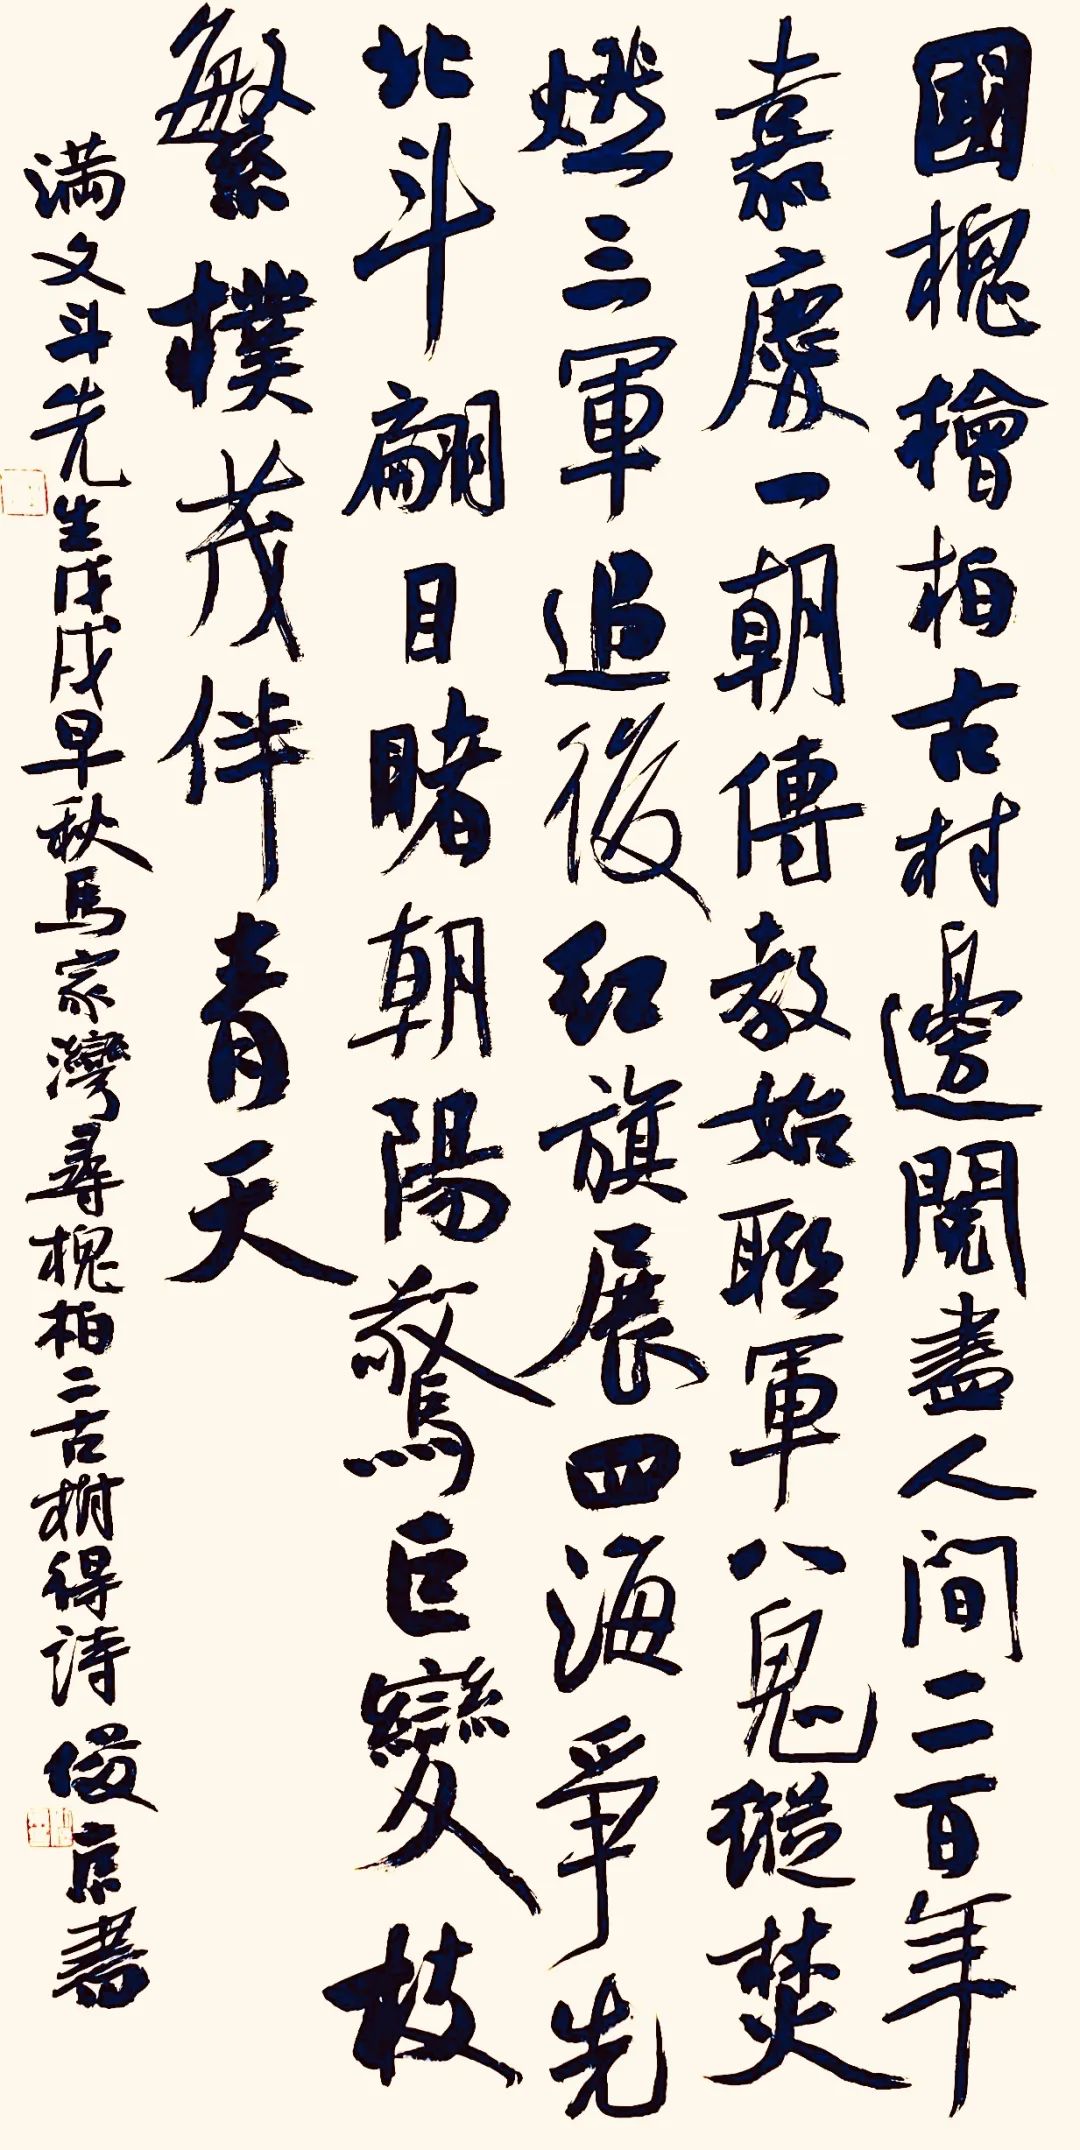 國槐檜柏古村邊閱盡人间二百年
嘉慶一朝傳教始聯軍八鬼縱焚
燃三軍追後红旗展四海爭先
北斗翩目睹朝陽驚巨變枝
繁樸茂伴青天
满文斗先生戊戌早秋馬家灣尋槐柏二古樹得詩 俊京書